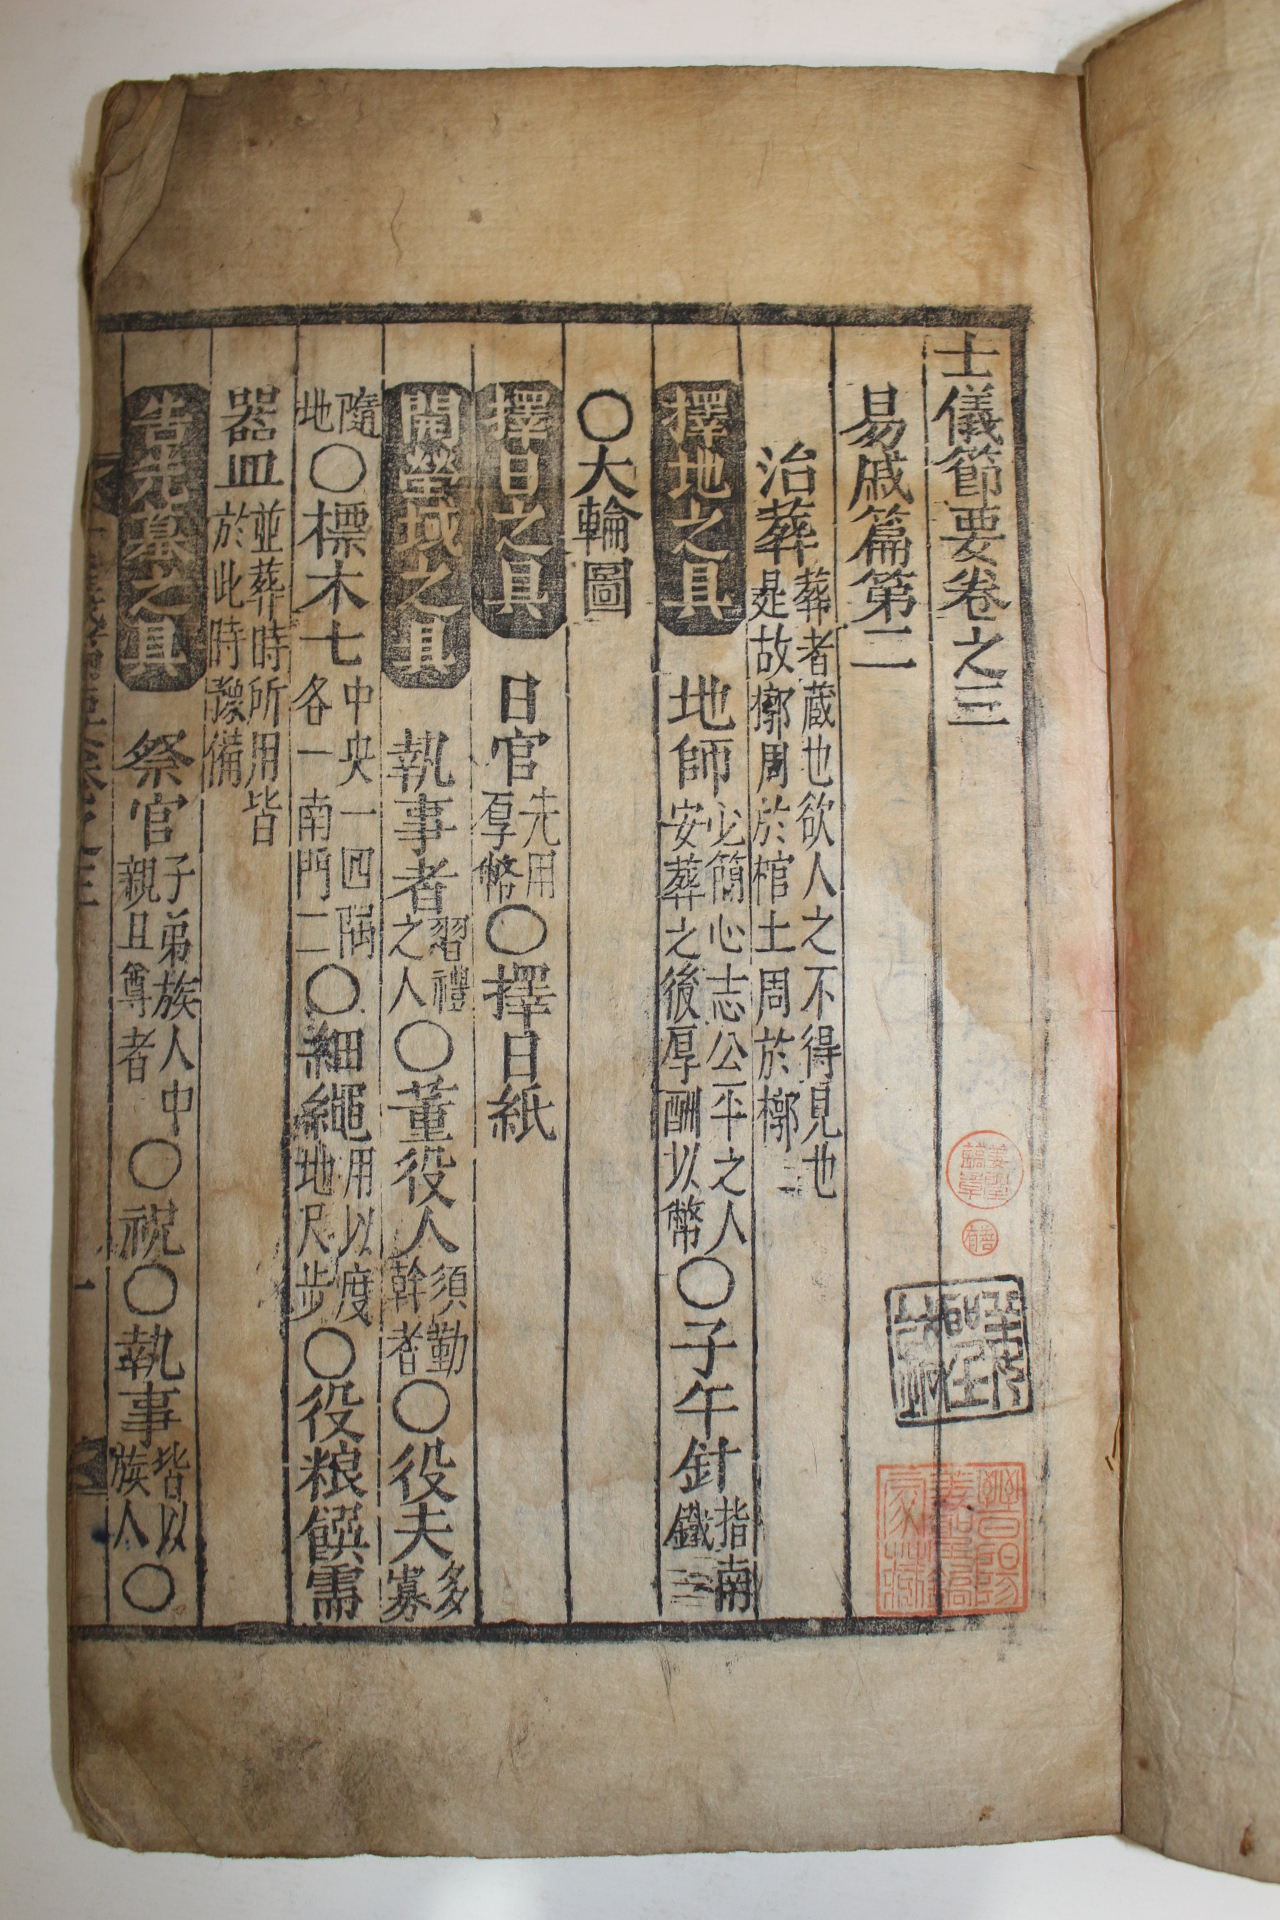 士儀節要卷之三
易戚篇第二
治葬 葬者藏也欲人之不得見也
是故槨周於棺土周於槨
擇地之具 地師 必簡心志公平之人
安葬之後厚酬以幣 〇子午針 指南
鐵
〇大輪圖
擇日之具 日官 先用
厚幣 〇擇日紙
開塋域之具 執事者 習禮
之人 〇董役人 須勤
幹者 〇役夫 多
寡
隨
地 〇標木七 中央一四隅
各一南門二 〇細繩 用以度
地尺步 〇役粮饌需
器皿 並葬時所用皆
於此時豫備
告先墓之具 祭官 子弟族人中
親且尊者 〇祝〇執事 皆以
族人 〇